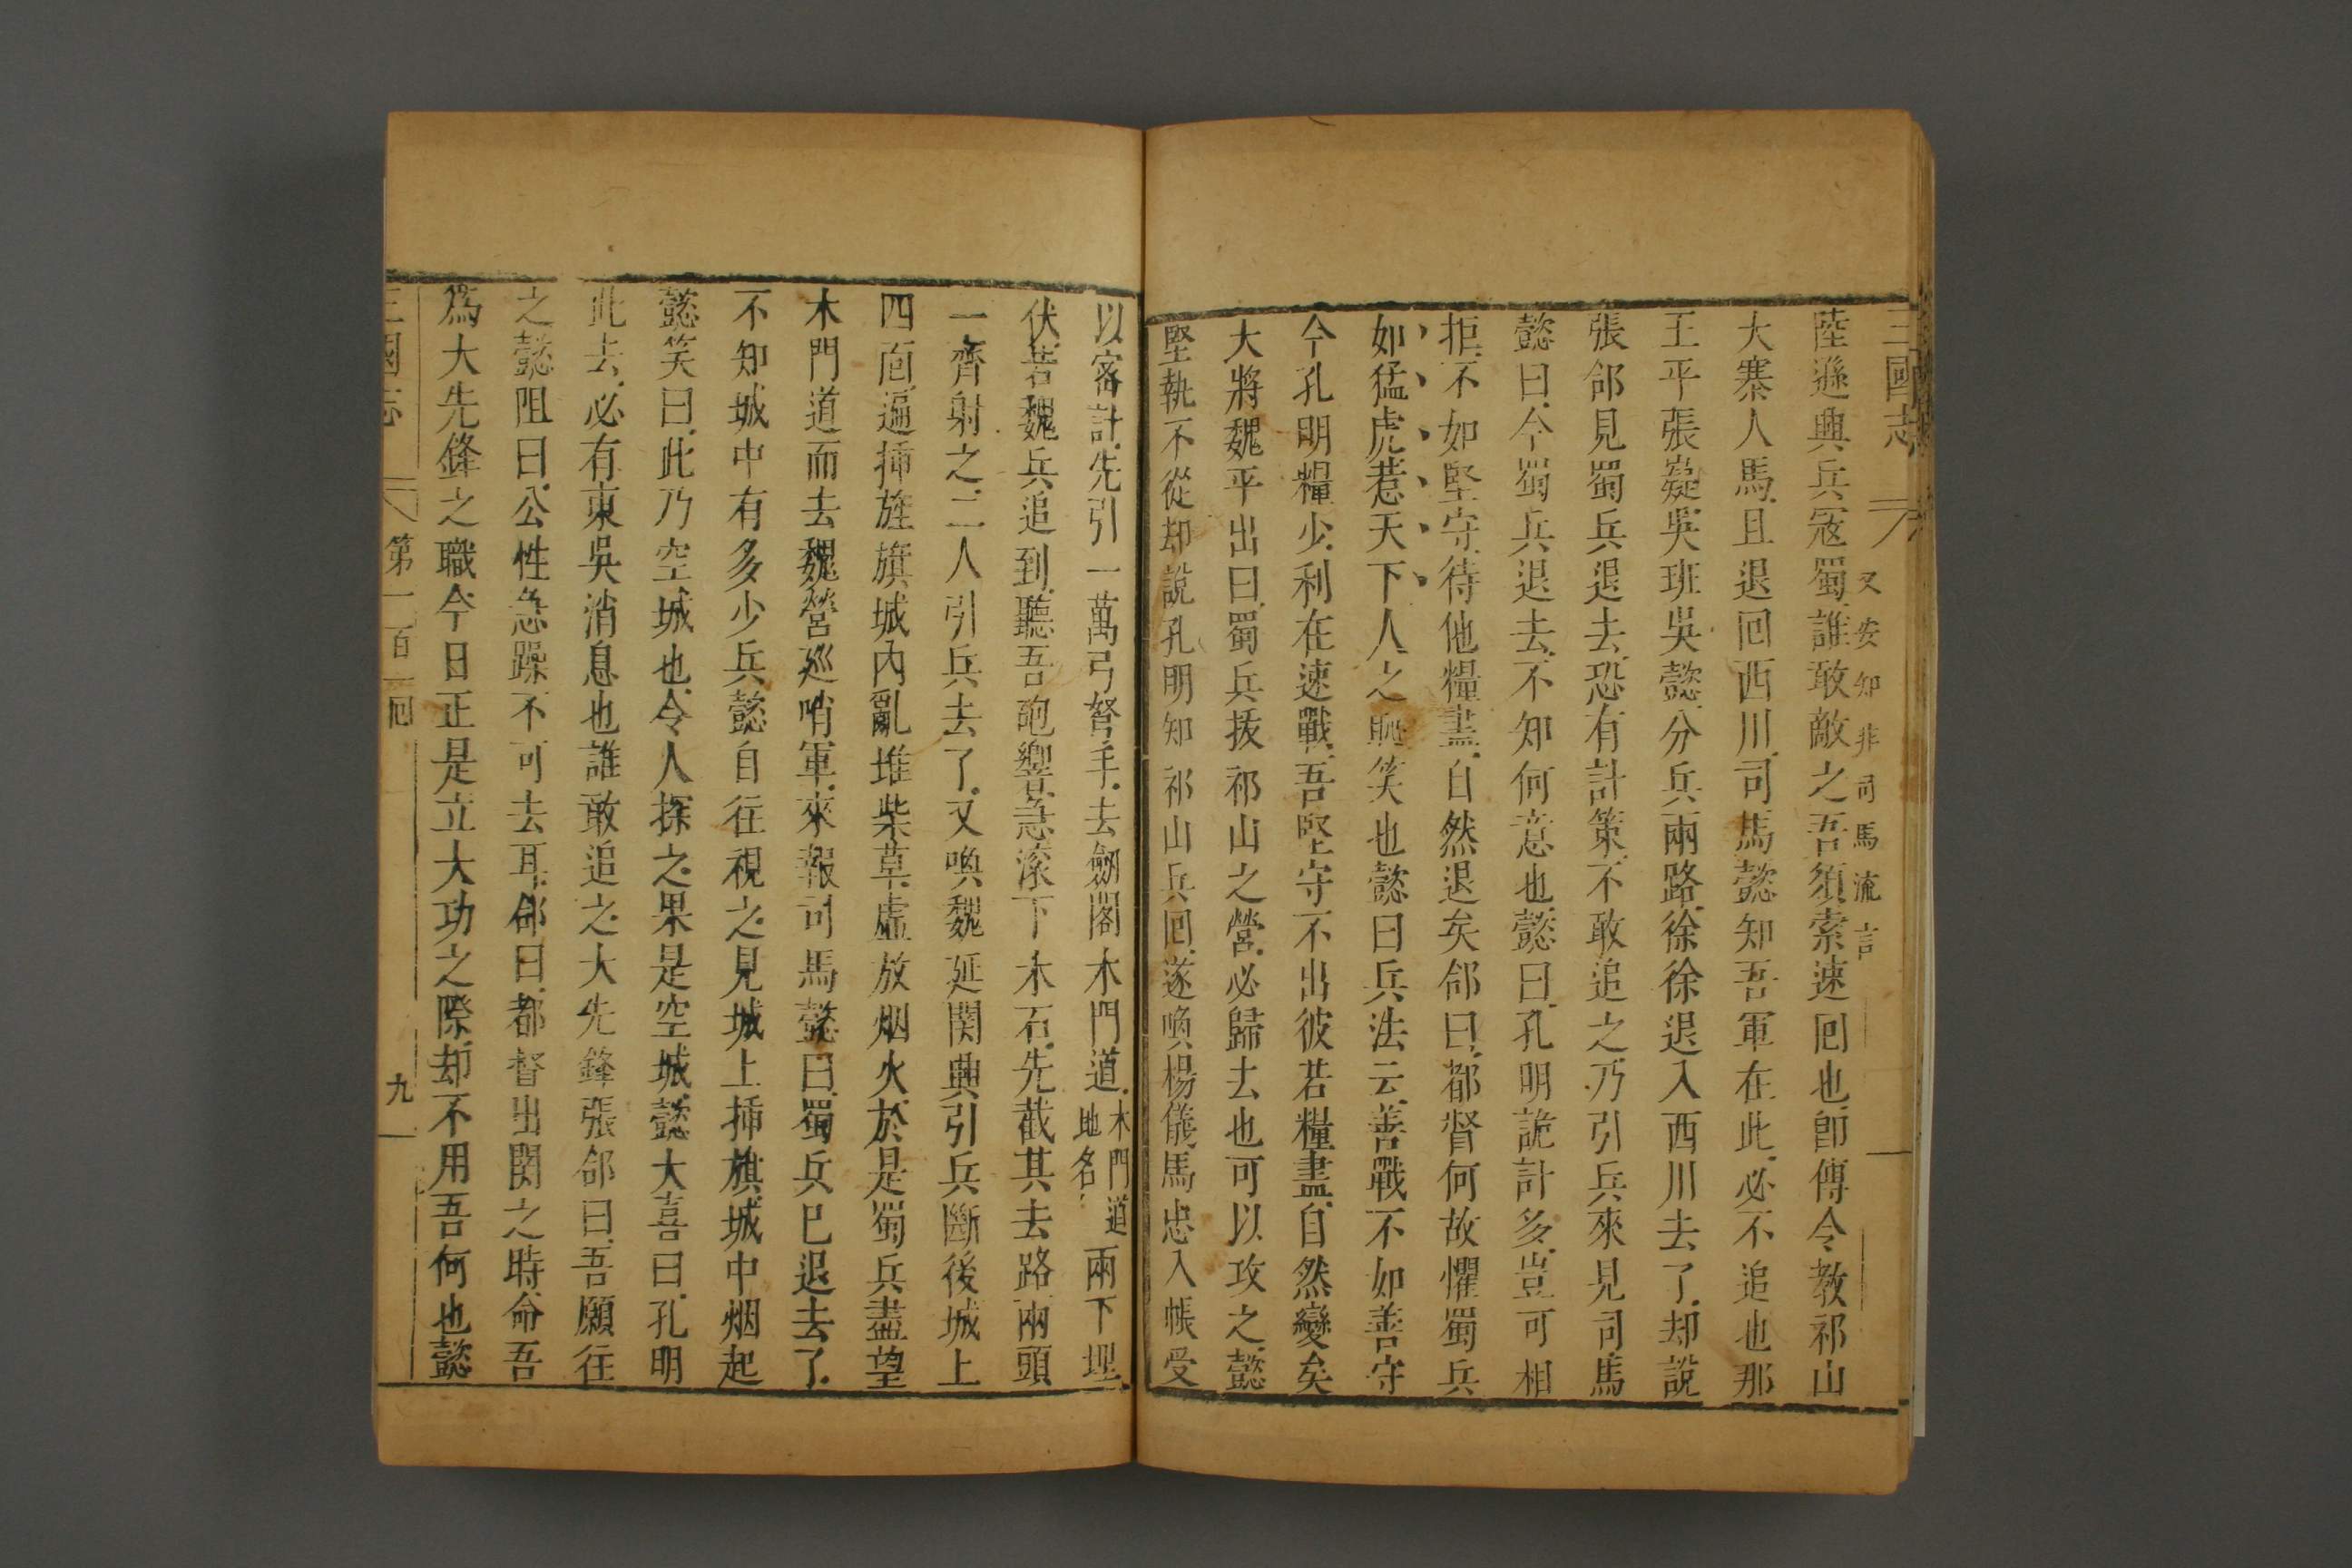 三國志
又安知非司馬流言
陸遜興兵寇蜀誰敢敵之吾須索速囘也卽傳令教祁山
大寨人馬且退囘西川司馬懿知吾軍在此必不追也那
王平張嶷吳班吳懿分兵兩路徐徐退入西川去了却說
張郃見蜀兵退去恐有計策不敢追之乃引兵來見司馬
懿曰今蜀兵退去不知何意也懿曰孔明詭計多豈可相
拒不如堅守待他糧盡自然退矣郃曰都督何故懼蜀兵
如猛虎惹天下人之恥笑也懿曰兵法云善戰不如善守
今孔明糧少利在速戰吾堅守不出彼若糧盡自然變矣
大將魏平出曰蜀兵拔祁山之營必歸去也可以攻之懿
堅執不從却說孔明知祁山兵囘遂喚楊儀馬忠入帳受
以密計先引一萬弓弩手去劔閣木門道木門道地名兩下埋
伏若魏兵追到聽吾砲響急滚下木石先截其去路兩頭
一齊射之二人引兵去了又喚魏延関興引兵斷後城上
四面遍揷旌旗城內亂堆柴草虛放烟火於是蜀兵盡望
木門道而去魏營廵哨軍來報司馬懿曰蜀兵已退去了
不知城中有多少兵懿自往視之見城上揷旗城中烟起
懿笑曰此乃空城也令人探之果是空城懿大喜曰孔明
此去必有東吳消息也誰敢追之大先鋒張郃曰吾願往
之懿阻曰公性急躁不可去耳郃曰都督出関之時命吾
爲大先鋒之職今日正是立大功之際却不用吾何也懿
三國志 第一百一囘 九